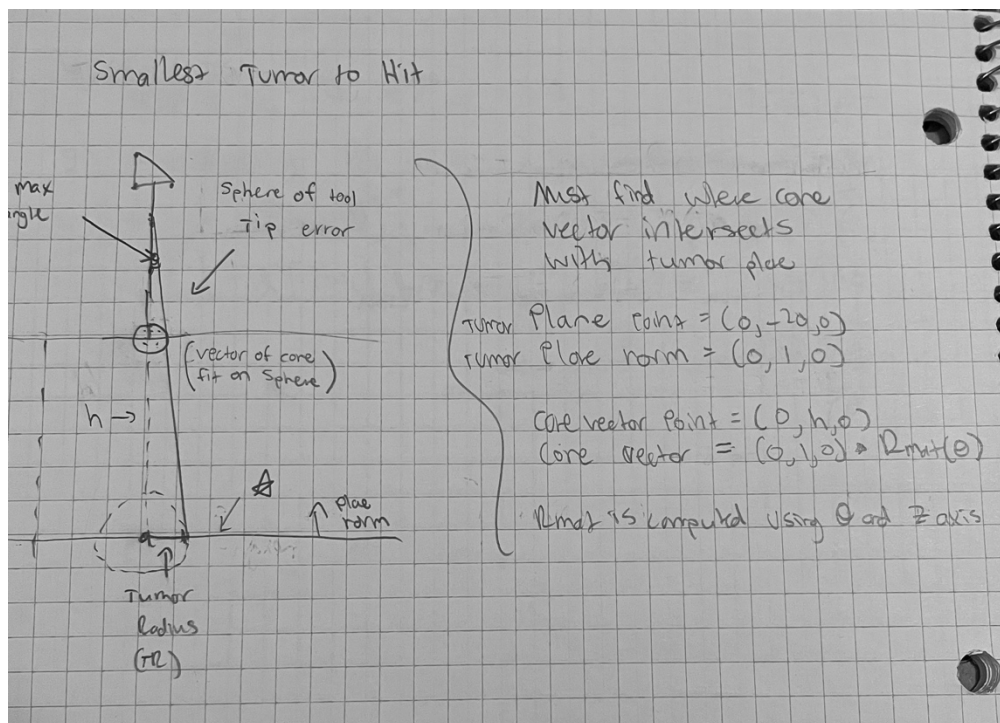 Smallest Tumor to Hit
max
ngle
Sphere of tool
Tip error
(vector of core
fit on Sphere)
h →
plae
norm
Tumor
Radius
(TR)
Must find where core
vector intersects
with tumor plae
Tumor Plane point = (0, -20, 0)
Tumor Plane norm = (0, 1, 0)
Core vector Point = (0, h, 0)
Core vector = (0, 1, 0) * Rmat(θ)
Rmat is computed using θ and z axis